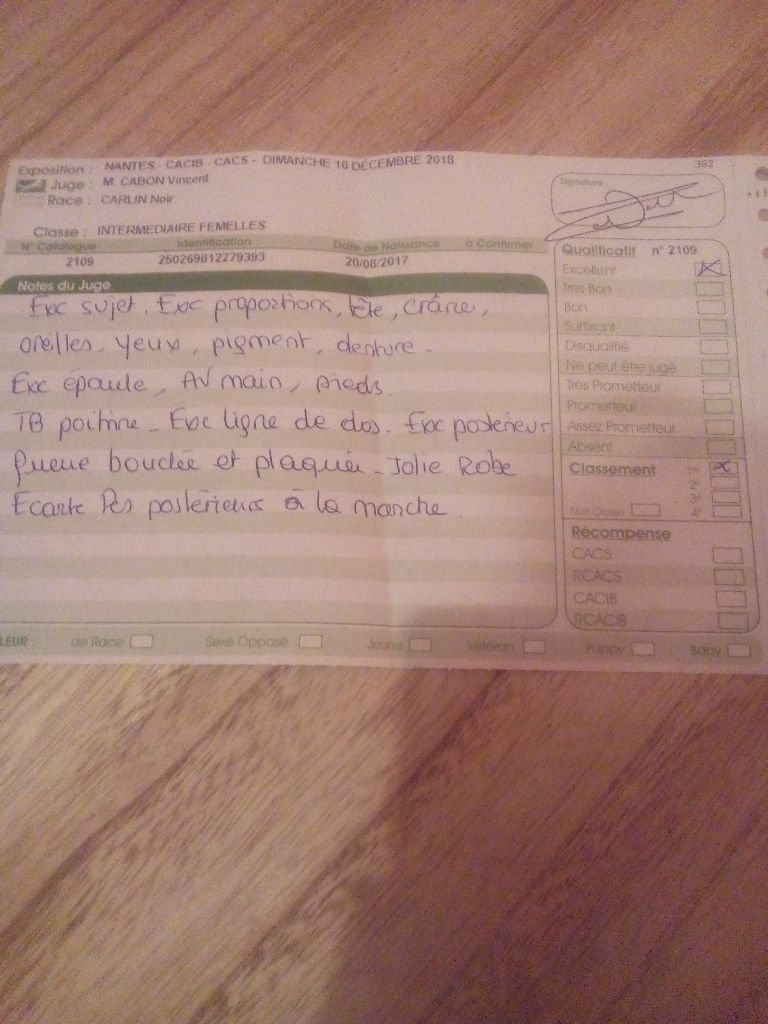 Exposition : NANTES - CACIB - CACS - DIMANCHE 16 DÉCEMBRE 2018
392
Juge : M. CABON Vincent
Race : CARLIN Noir
Signature
Classe : INTERMEDIAIRE FEMELLES
N° Catalogue Identification Date de Naissance à Confirmer
2109 250269812279393 20/08/2017
Notes du Juge
Exc sujet. Exc proportions, tête, crâne,
oreilles, yeux, pigment, denture.
Exc épaule, AV main, pieds.
TB poitrine - Exc ligne de dos. Exc postérieur
Queue bouclée et plaquée - Jolie Robe
Ecarte les postérieurs à la marche.
Qualificatif n° 2109
Excellent
Très Bon
Bon
Suffisant
Disqualifié
Ne peut être jugé
Très Prometteur
Prometteur
Assez Prometteur
Absent
Classement 1°
2°
3°
Non Classé 4°
Récompense
CACS
RCACS
CACIB
RCACIB
LEUR : de Race Sexe Opposé Jeune Vétéran Puppy Baby